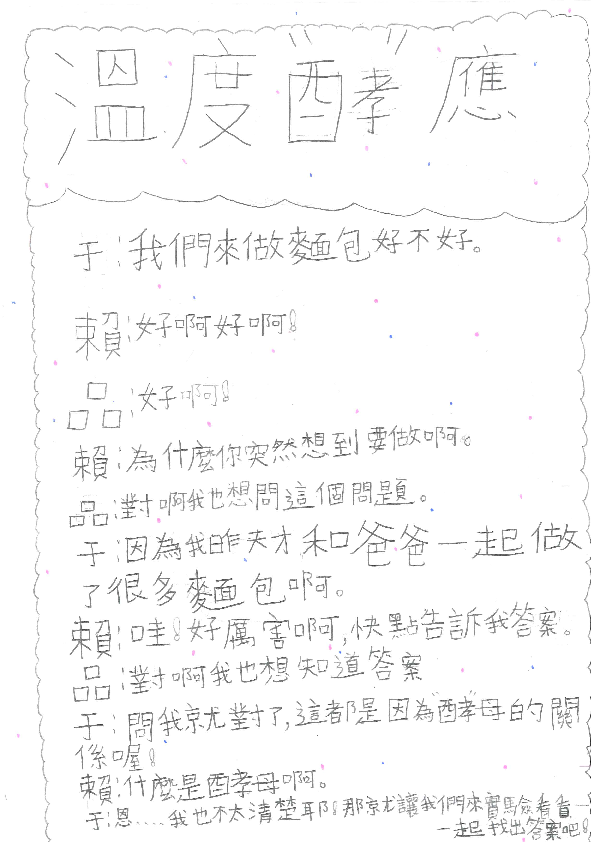 溫度"酵"應
于:我們來做麵包好不好。
賴:好啊好啊!
品:好啊!
賴:為什麼你突然想到要做啊。
品:對啊我也想問這個問題。
于:因為我昨天才和爸爸一起做
了很多麵包啊。
賴:哇!好厲害啊,快點告訴我答案。
品:對啊我也想知道答案
于:問我就對了,這都是因為"酵"母的關
係喔!
賴:什麼是酵母啊。
于:恩.....我也不太清楚耶!那就讓我們來實驗看看一
一起找出答案吧!